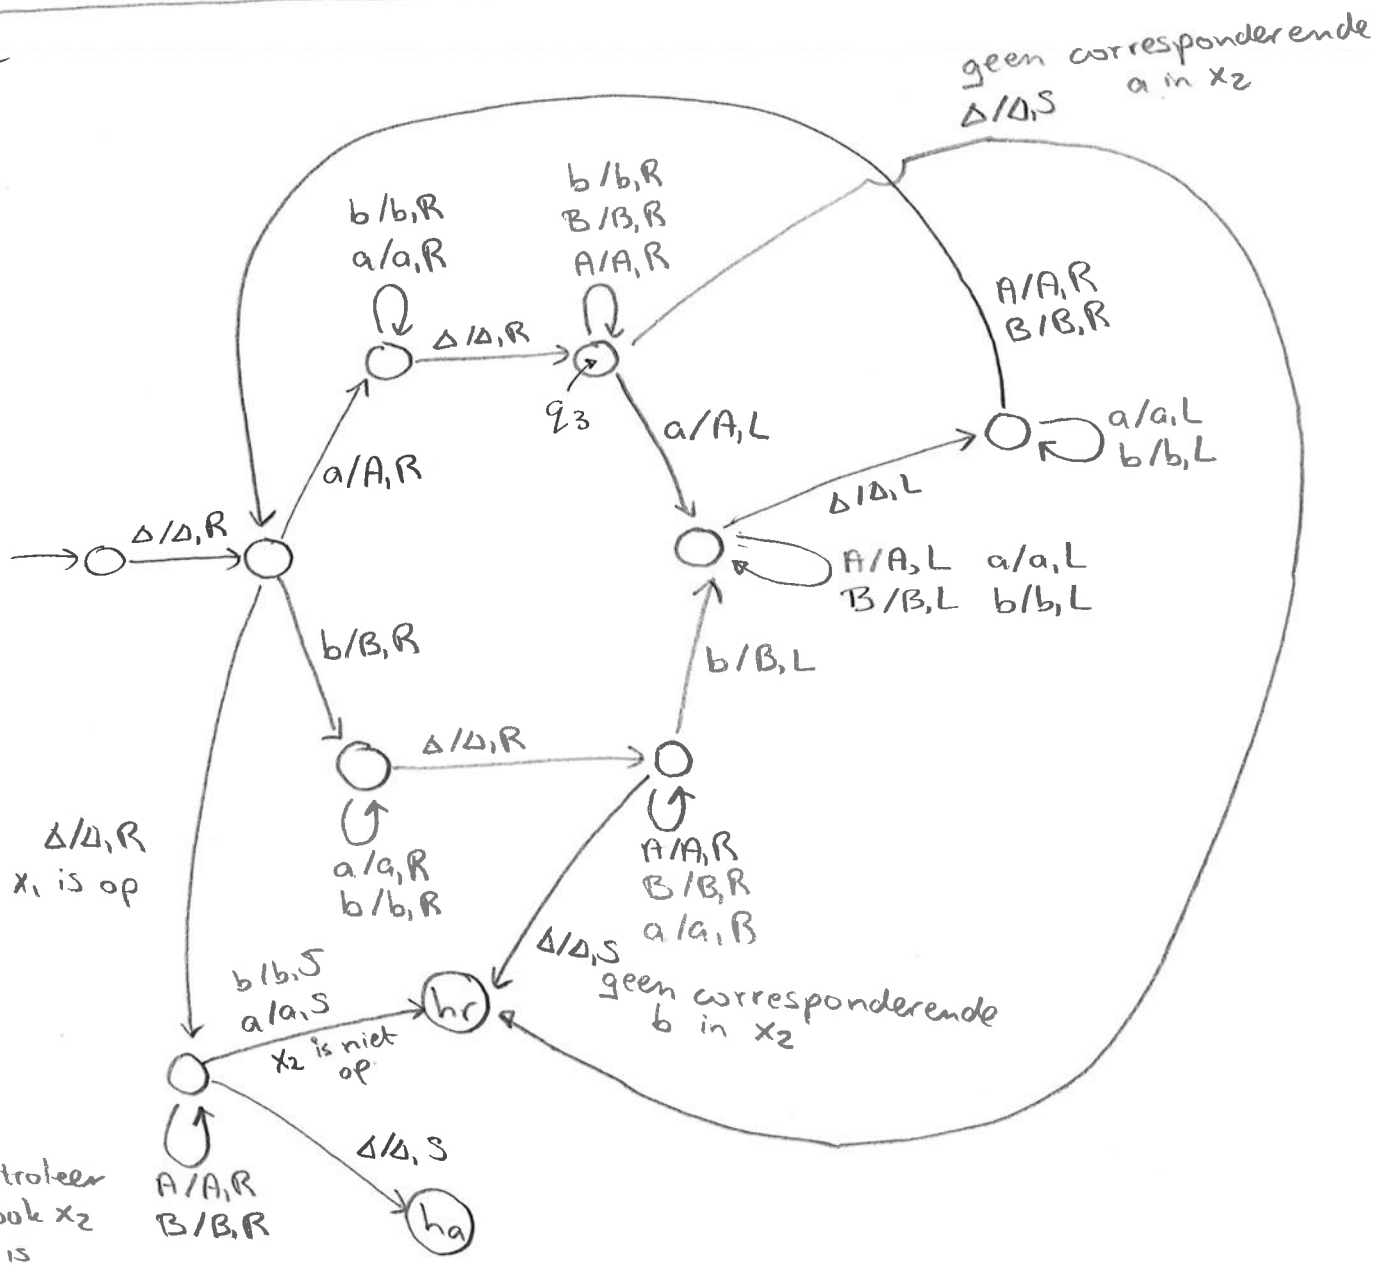 geen corresponderende
a in x₂
Δ/Δ,S
b/b,R
B/B,R
A/A,R
b/b,R
a/a,R
A/A,R
B/B,R
Δ/Δ,R
q₃
a/A,L
a/a,L
b/b,L
a/A,R
Δ/Δ,L
Δ/Δ,R
A/A,L a/a,L
B/B,L b/b,L
b/B,R
b/B,L
Δ/Δ,R
Δ/Δ,R
x₁ is op
a/a,R
b/b,R
A/A,R
B/B,R
a/a,R
Δ/Δ,S
geen corresponderende
b in x₂
b/b,S
a/a,S
x₂ is niet
op
hr
Δ/Δ,S
ha
A/A,R
B/B,R
troleer
ook x₂
is